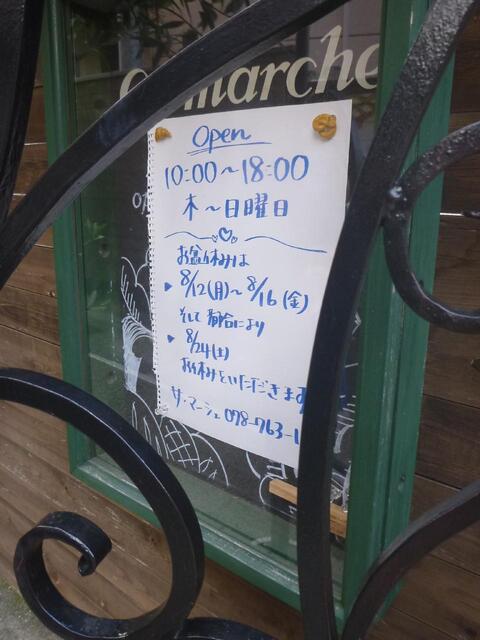 marche
Open
10:00～18:00
木～日曜日
お盆休みは
▶ 8/12(月)～8/16(金)
そして都合により
▶ 8/24(土)
お休みといただきます
サ・マーシュ 078-763-1